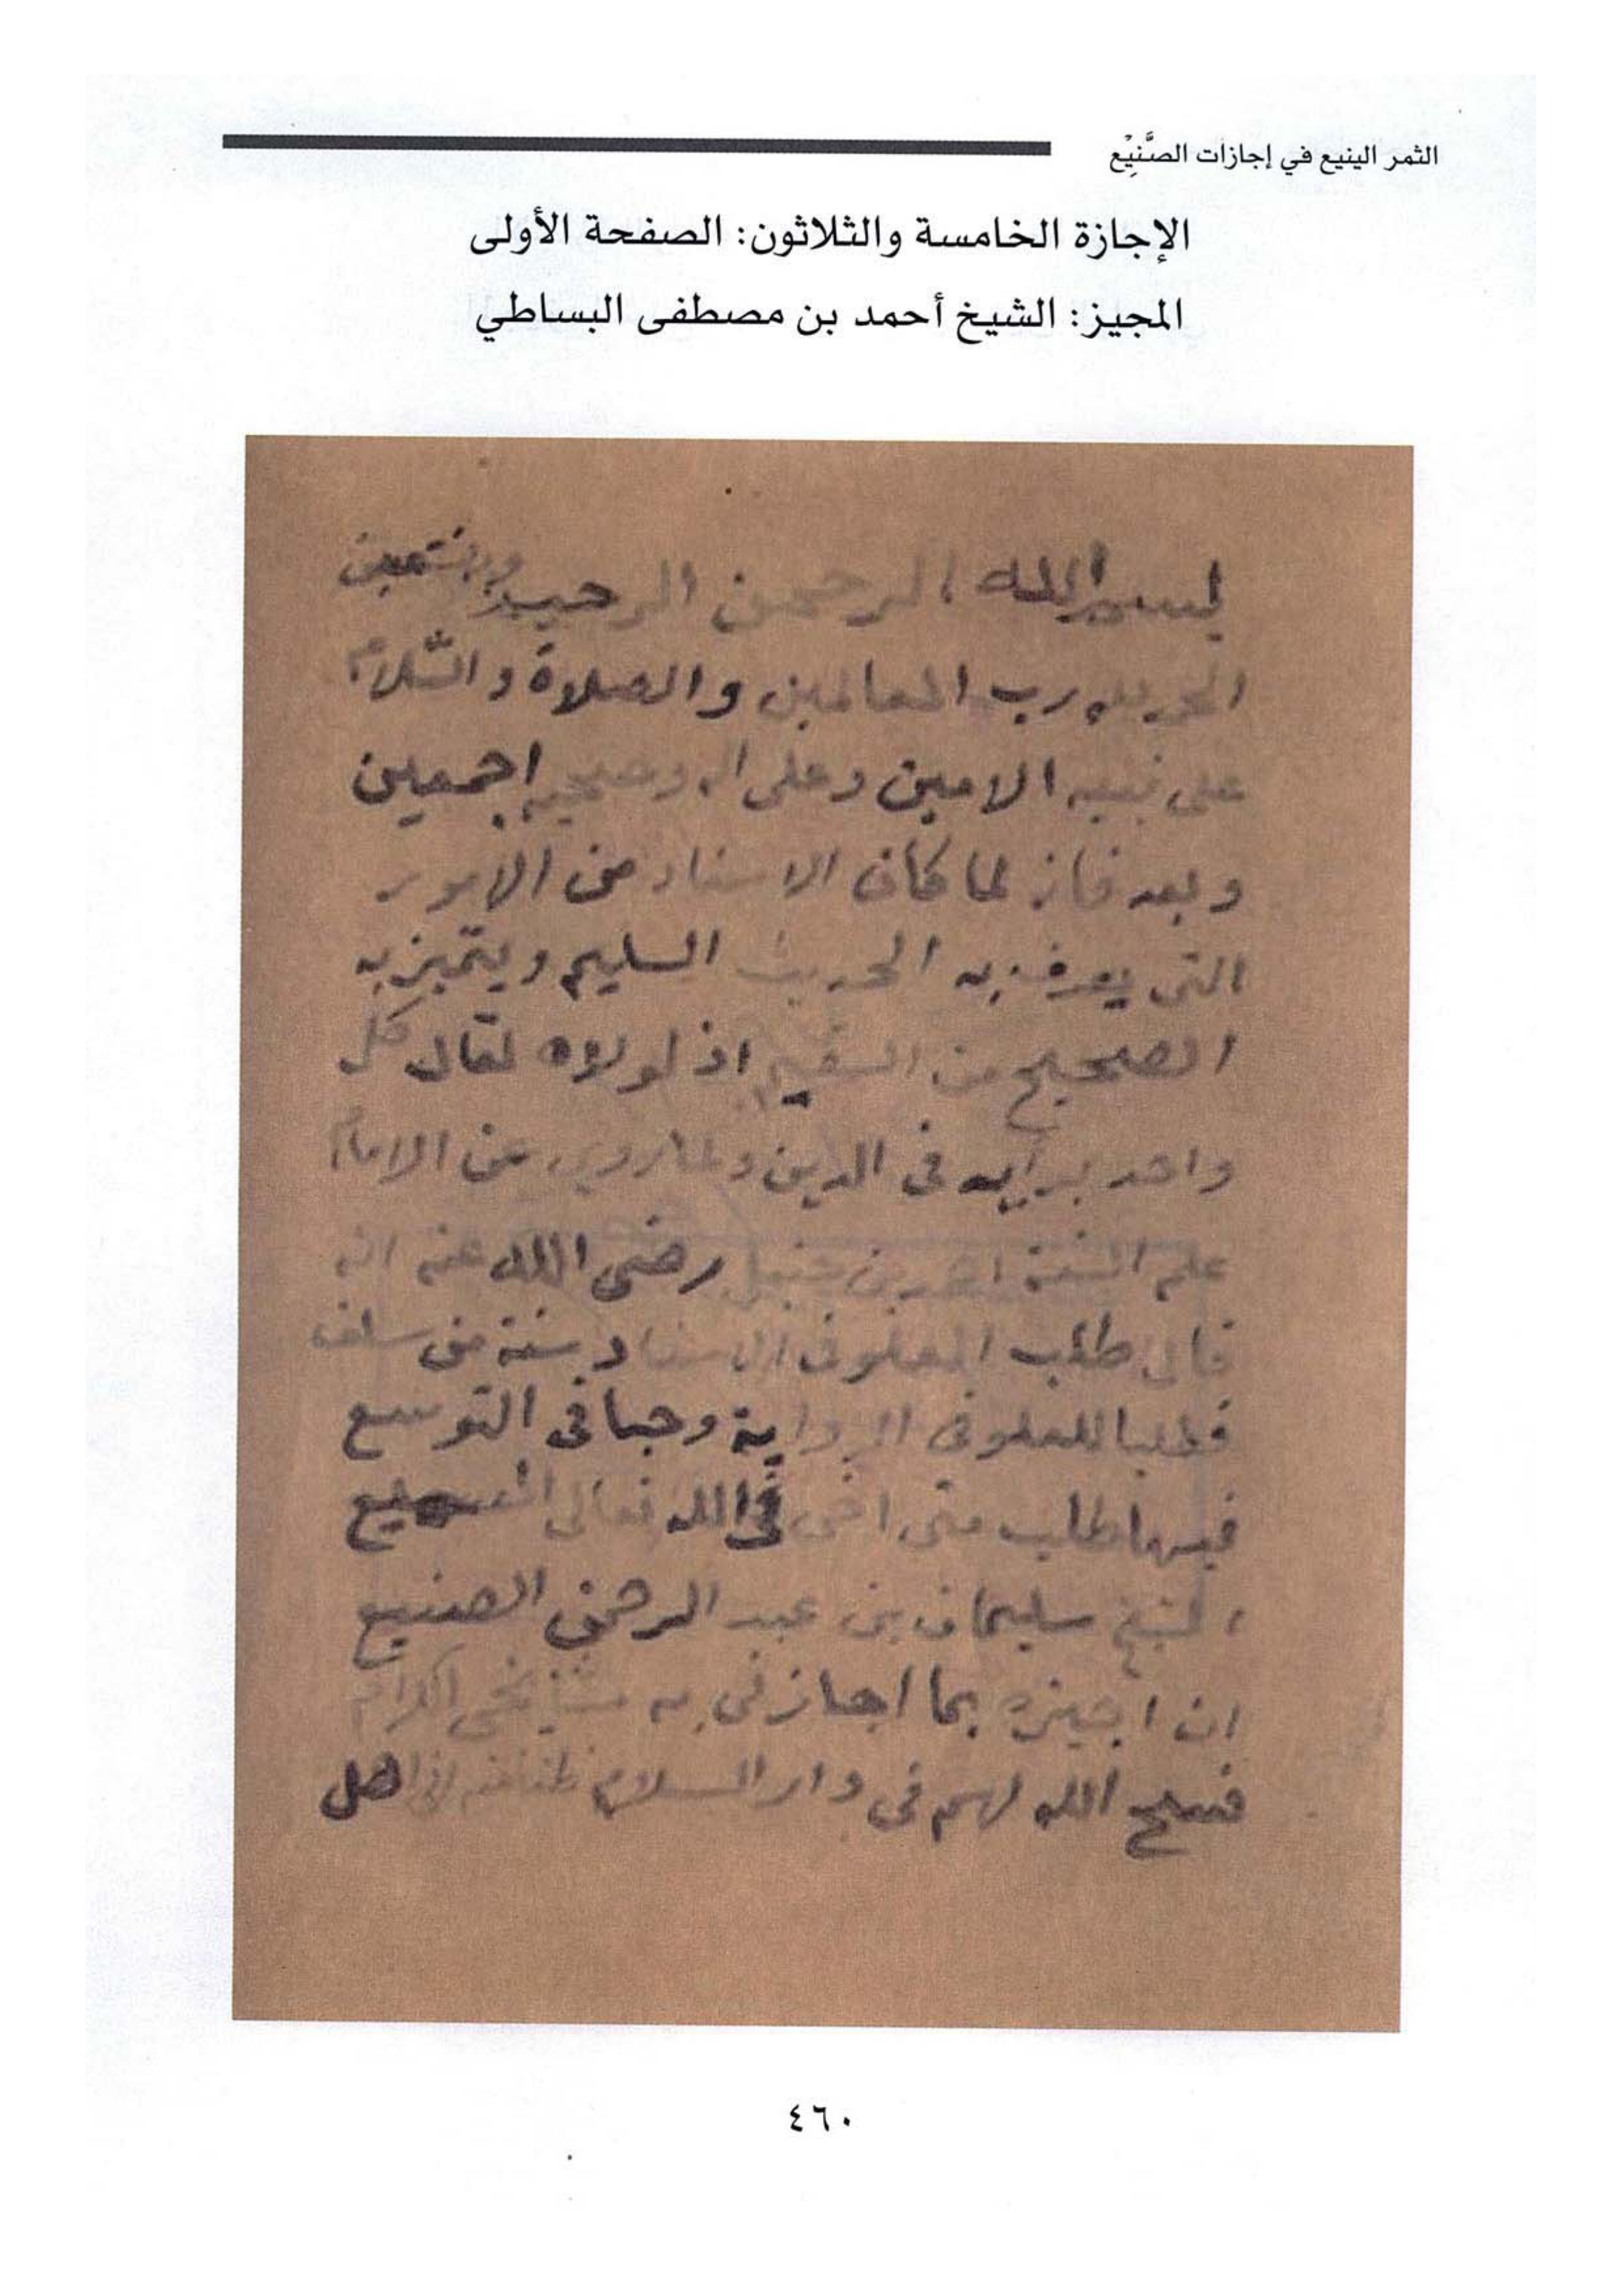 الثمر الينيع في إجازات الصَّنِيْع
الإجازة الخامسة والثلاثون: الصفحة الأولى
المجيز: الشيخ أحمد بن مصطفى البساطي
بسم الله الرحمن الرحيم وبه نستعين
الحمد لله رب العالمين والصلاة والسَّلام
على نبيه الامين وعلى اله وصحبه اجمعين
وبعد فانه لما كان الاسناد من الامور
التى يعرف به الحديث السليم ويتميز به
الصحيح من السقيم اذ لولاه لقال كل
واحد برأيه فى الدين ولما روي عن الامام
علم السنة احمد بن حنبل رضى الله عنه انه
قال طلب العلو فى الاسناد سنة من سلف
فطلبا للعلو فى الرواية وحبا فى التوسع
فيها طلب منى اخى فى الله تعالى
الشيخ سليمان بن عبد الرحمن الصنيع
ان اجيزه بما اجازنى به مشايخى الكرام
فسح الله لهم فى دار السلام ظنا منه انى اهل
٤٦٠